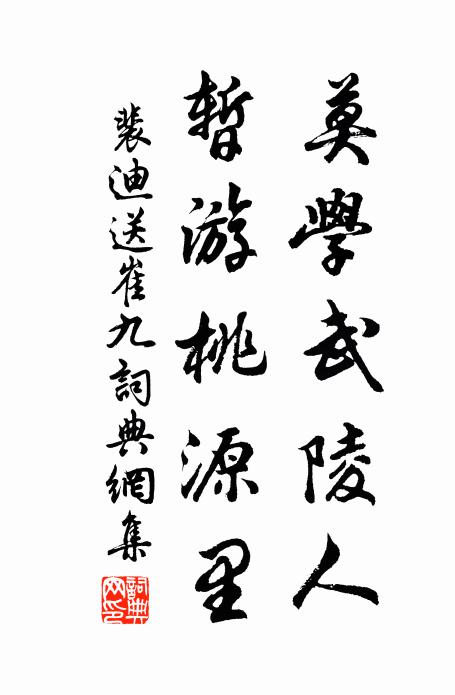 莫學武陵人
暫游桃源里
裴迪送崔九詞典網集
詞典网印